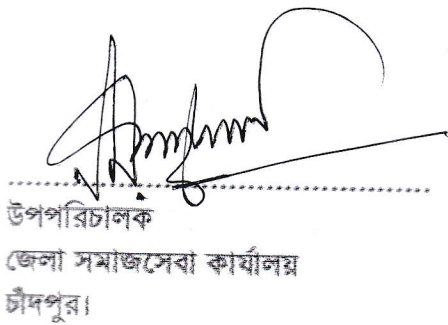 উপপরিচালক
জেলা সমাজসেবা কার্যালয়
চাঁদপুর।